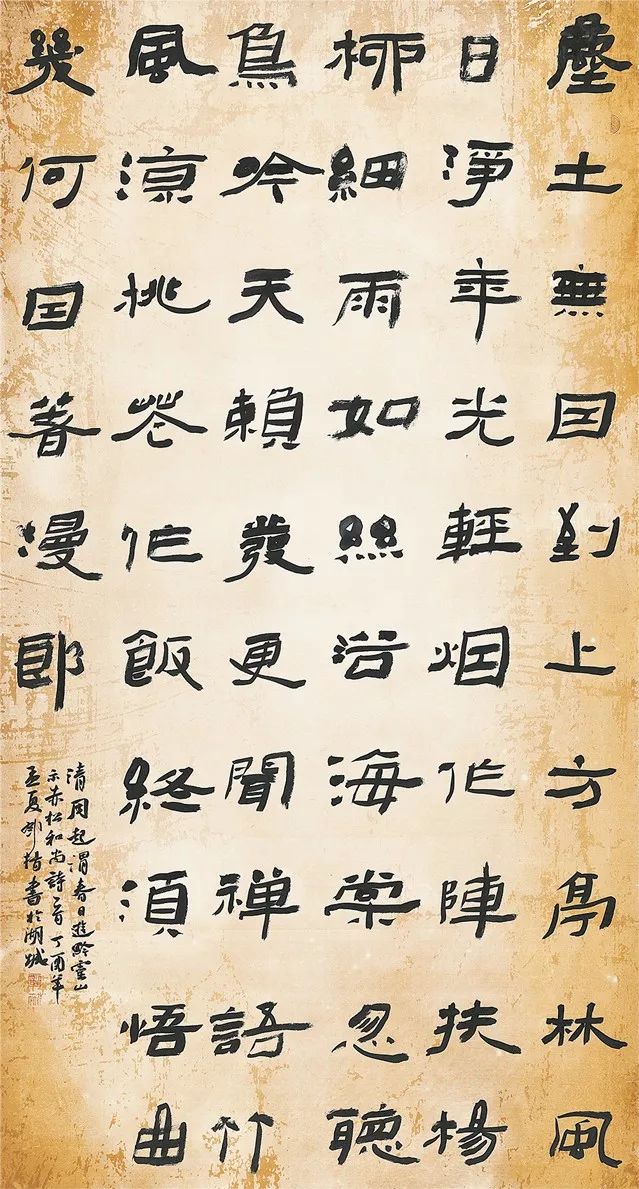 塵土無因到上方高林風
日淨年光輕烟作陣扶楊
柳細雨如絲浴海棠忽聽
鳥吟天賴發更聞禅語竹
風涼桃花作飯終須悟曲
幾何因著漫郎
清周起渭春日遊黔靈山
示赤松和尚詩一首丁酉年
孟夏鄧楷書於湖城